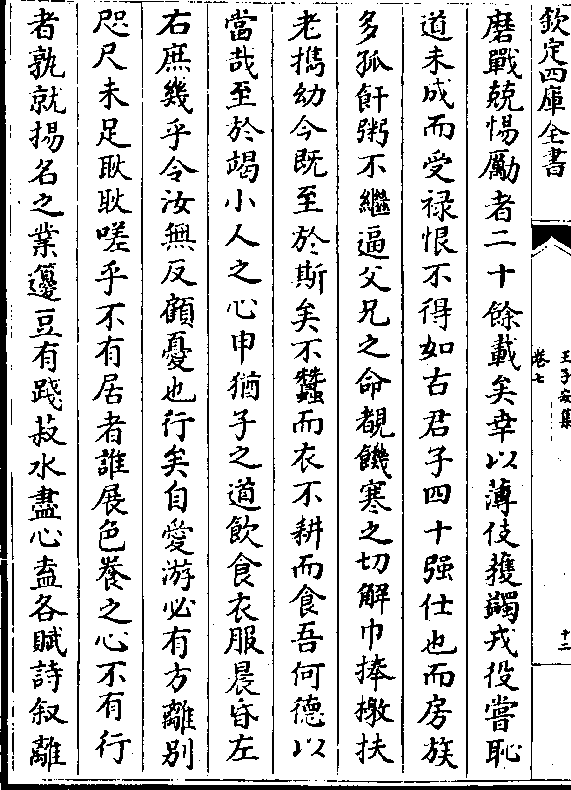 欽定四庫全書
王子安集
卷七
十二
磨戰兢惕勵者二十餘載矣幸以薄伎獲蠲戎役嘗恥
道未成而受祿恨不得如古君子四十强仕也而房族
多孤飦粥不繼逼父兄之命覩饑寒之切解巾捧檄扶
老攜幼今旣至於斯矣不蠶而衣不耕而食吾何德以
當哉至於竭小人之心申猶子之道飲食衣服晨昏左
右庶幾乎令汝無反顧憂也行矣自愛游必有方離别
咫尺未足耿耿嗟乎不有居者誰展色養之心不有行
者孰就揚名之業籩豆有踐菽水盡心盍各賦詩叙離